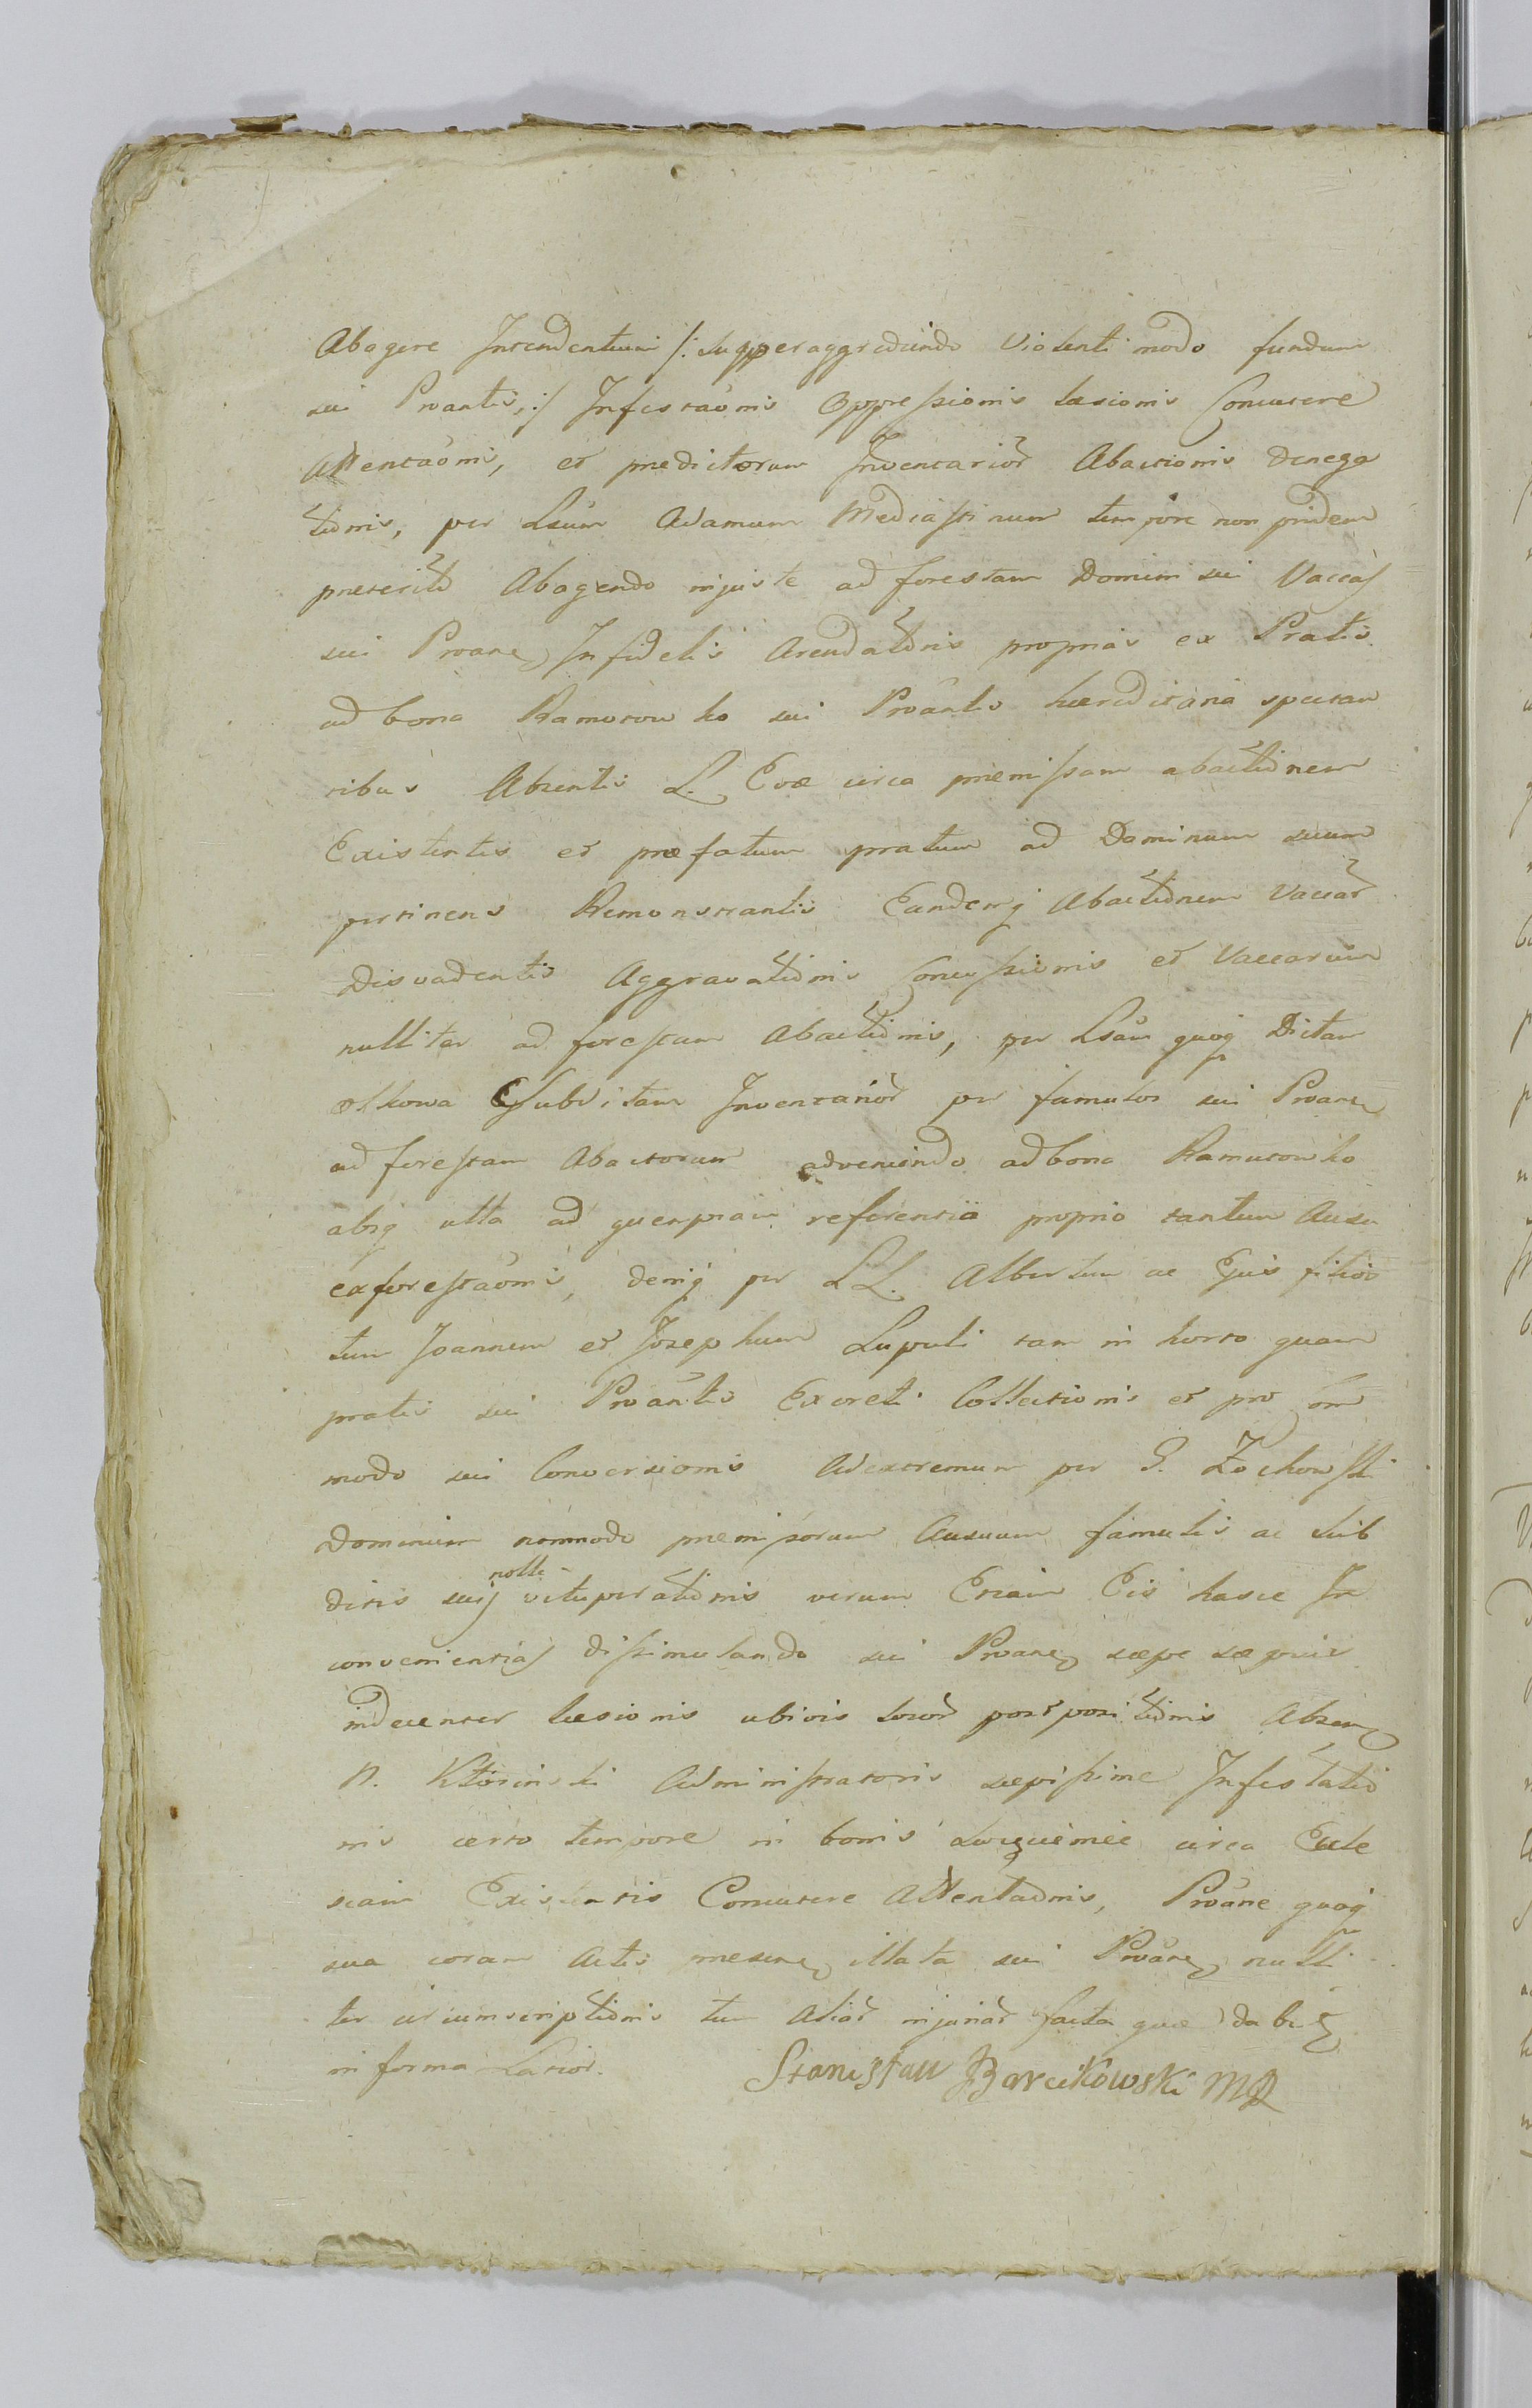 Abagere Intendentium /: supperaggrediendo violenti modo fundum
sui Proantis, :/ Infestaonis Oppressionis læsionis Concutere
Attentaonis, et predictorum Inventarior Abactionis denega
tionis, per Lsum Adamum Mediastinum tempore non pridem
preterito Abagendo injuste ad forestam Domini sui Vaccas
sui Proane Infidelis Arendatoris proprias ex Pratis
ad bona Ramutowko sui Proantis hæreditaria spectan
tibus Absentis L. Evæ circa premissam abactionem
Existentis et præfatum pratum ad Dominum suum
pertinens Remonstrantis Eandemq Abactionem Vaccar
Disvadentis Aggravationis Concussionis et Vaccarum
nulliter ad forestam Abactionis, per Lsam quoq Dictam
Subditam Inventarior per famulos sui Proane
ad forestam Abactorum adveniendo ad bona Ramutowko
absq ulla ad quempiam referentia proprio tantum Ausu
exforestaonis, deniq per LL. Albertum ac Ejus filios
tum Joannem et Josephum Lupuli tam in horto quam
pratis sui Proantis Excreti Collectionis et pro om
modo sui Conversionis Adextremum per G. Żochowski
Dominum nonmodo premissorum Ausuum famulis ac sub
ditis suis nolle vituperationis verum Etiam Eis hasce In
convenientias dissimulando sui Proane sæpe sæpius
indecenter læsionis ubivis locor postpositionis Absen
N. Ktorinski Administratoris sæpissime Infestatio
nis certo tempore in bonis circa Eccle
siam Existentis Concutere Attentaonis, Proane quoq
sua coram Actis presen illata sui Proane nulli
ter circumscriptionis tum Aliar injuriar facta quæ dabit
in forma Latior. Stanisław Barcikowski MP